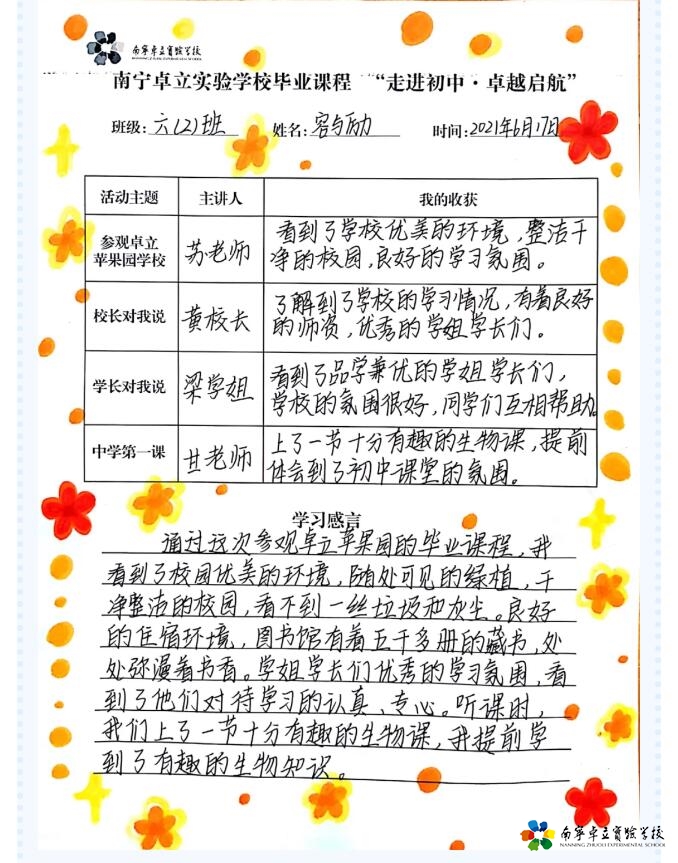 南宁卓立实验学校
NANNING ZHUOLI EXPERIMENTAL SCHOOL
南宁卓立实验学校毕业课程 “走进初中·卓越启航”
班级:六(2)班 姓名:容与励 时间:2021年6月17日
活动主题 主讲人 我的收获
参观卓立
苹果园学校
苏老师
看到了学校优美的环境,整洁干
净的校园,良好的学习氛围。
校长对我说
黄校长
了解到了学校的学习情况,有着良好
的师资,优秀的学姐学长们。
学长对我说
梁学姐
看到了品学兼优的学姐学长们,
学校的氛围很好,同学们互相帮助。
中学第一课
甘老师
上了一节十分有趣的生物课,提前
体会到了初中课堂的氛围。
学习感言
通过这次参观卓立苹果园的毕业课程,我
看到了校园优美的环境,随处可见的绿植,干
净整洁的校园,看不到一丝垃圾和灰尘。良好
的住宿环境,图书馆有着五千多册的藏书,处
处弥漫着书香。学姐学长们优秀的学习氛围,看
到了他们对待学习的认真、专心。听课时,
我们上了一节十分有趣的生物课,我提前学
到了有趣的生物知识。
南宁卓立实验学校
NANNING ZHUOLI EXPERIMENTAL SCHOOL